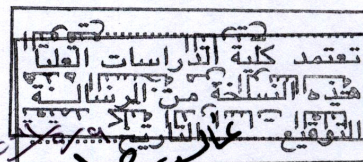 تعتمد كلية الدراسات العليا
هذه النسخة من الرسالة
التوقيع التاريخ